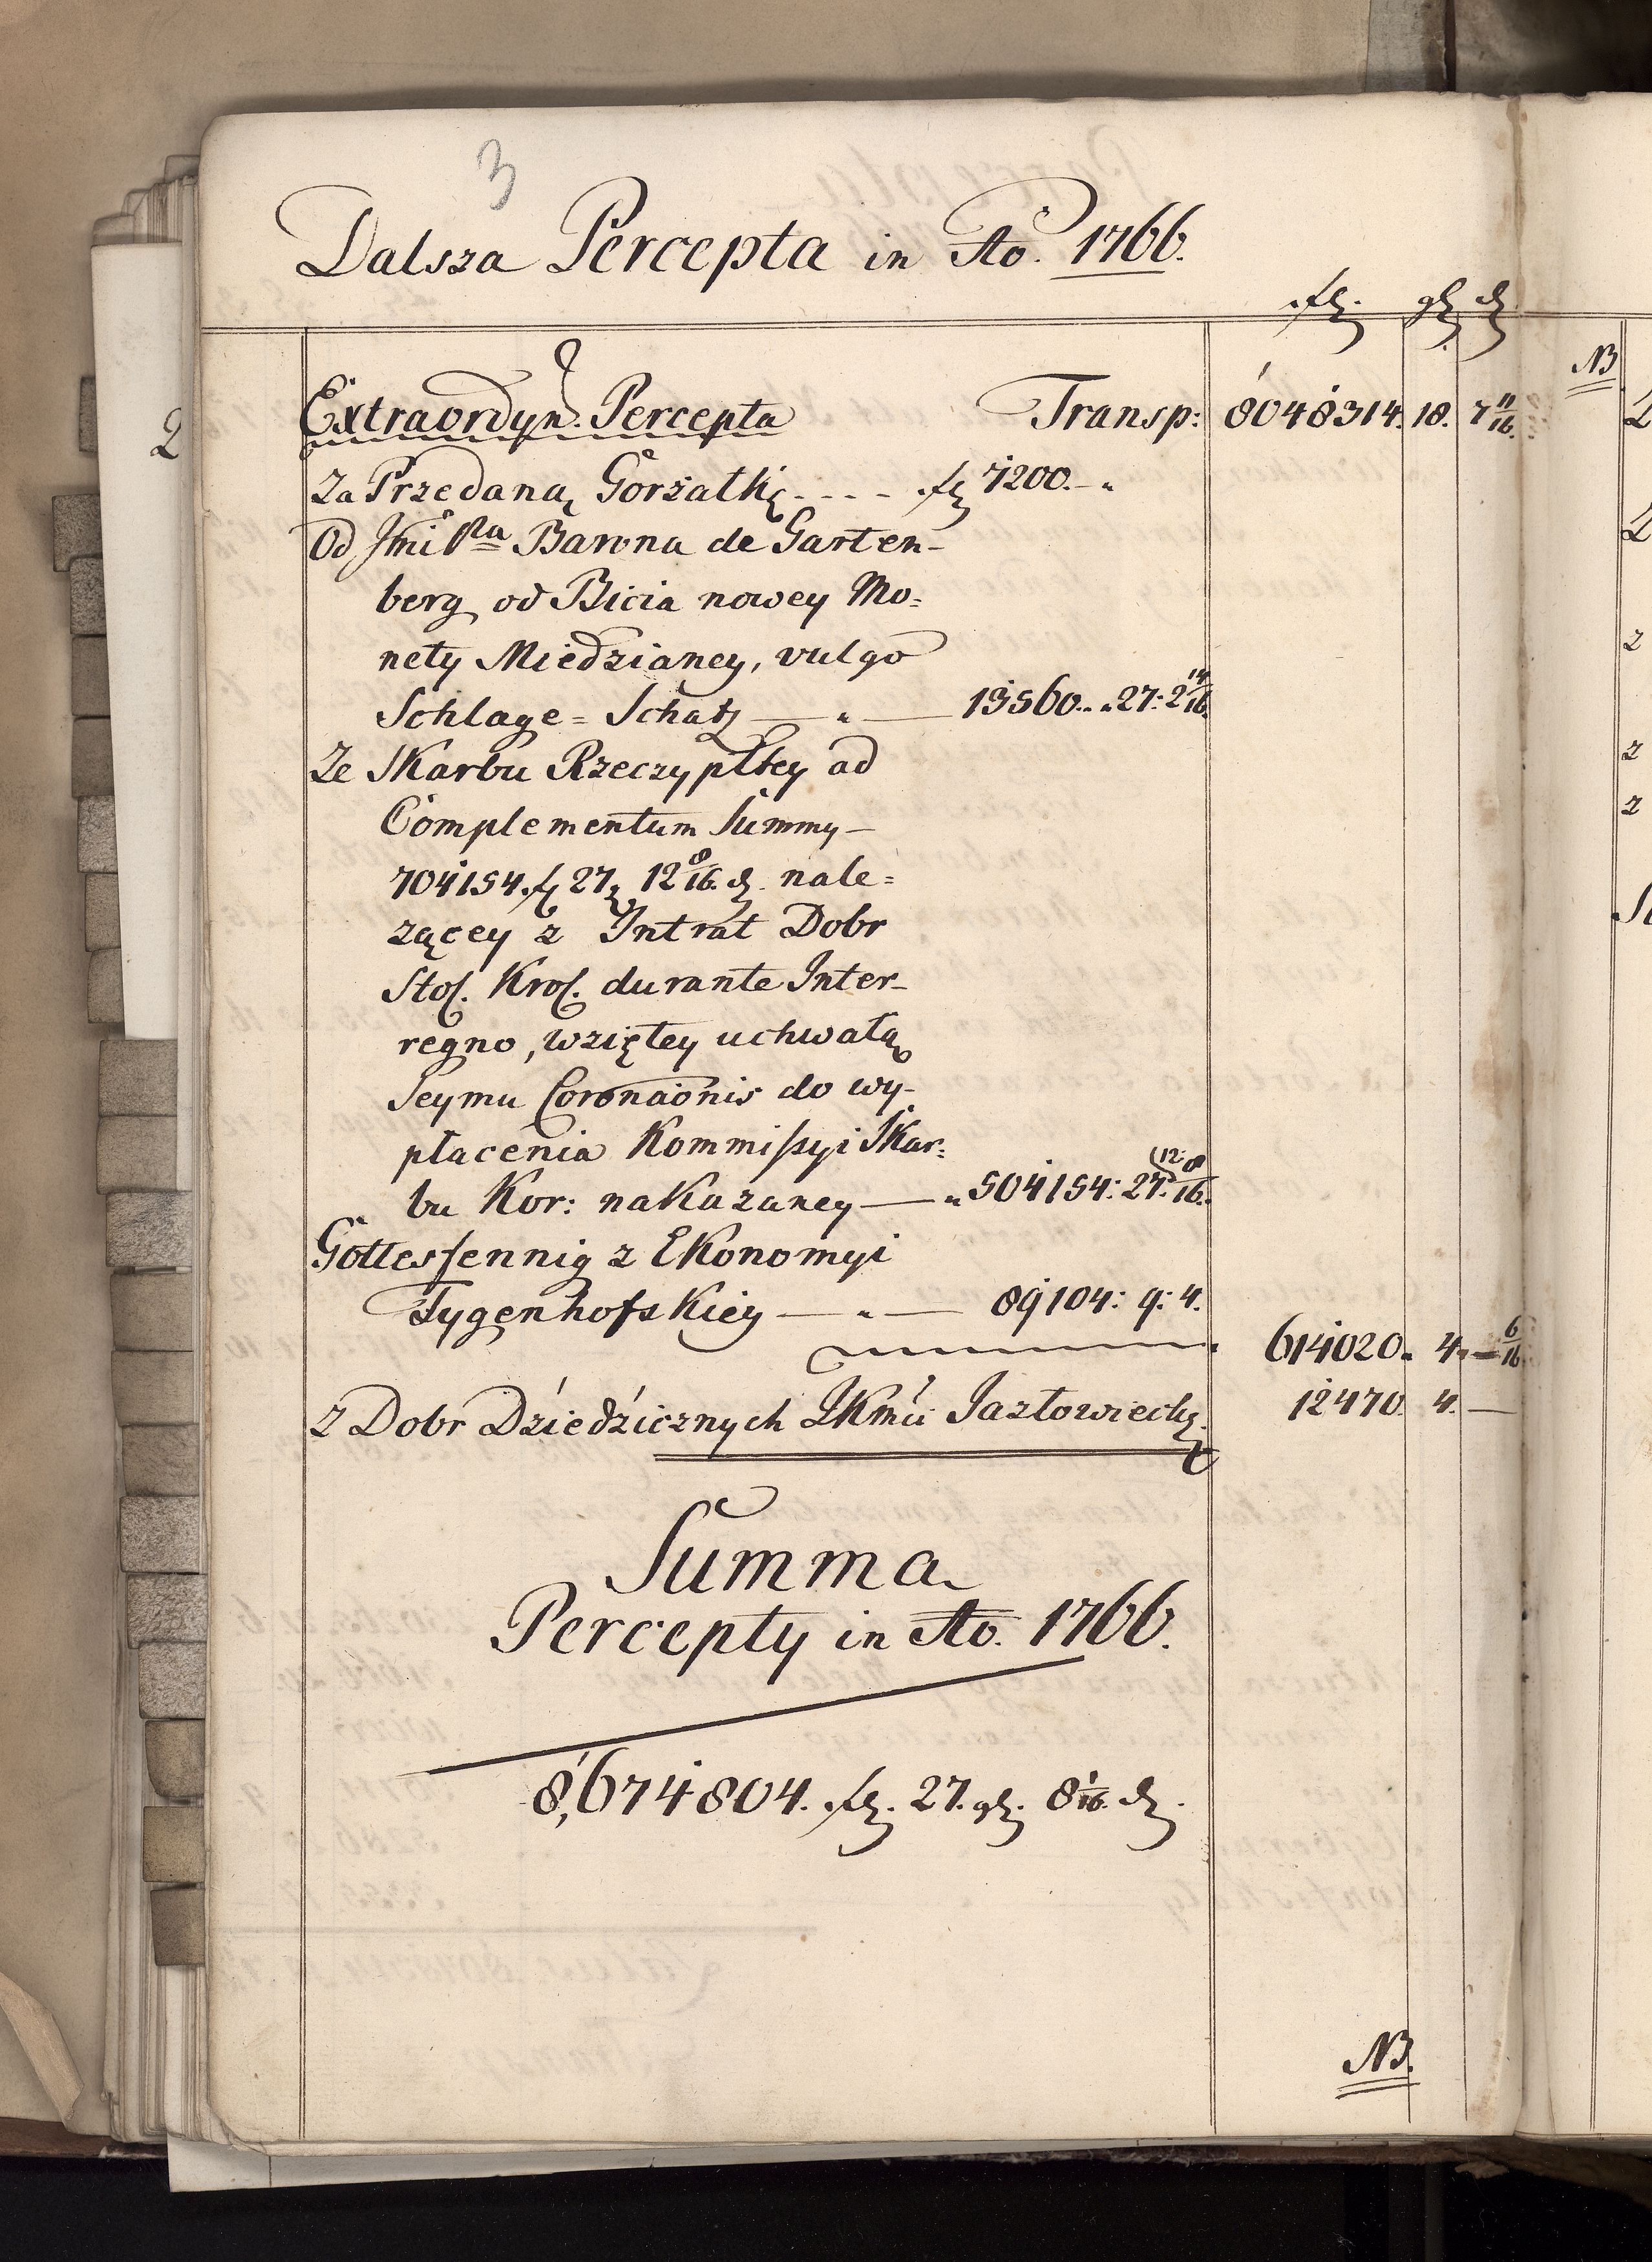 3
Dalsza Percepta in Ao. 1766.
fl. gl. d.
Extraordyn. Percepta Transp: 8048314. 18. 7 11/16.
Za Przedaną Gorzałkę. - - - fl 7200. - "
Od Jmć Pna Barona de Garten-
berg od Bicia nowey Mo=
nety Miedzianey, vulgo
Schlage = Schatz — " — 13560. " 27: 2 14/16.
Ze Skarbu Rzeczypltey ad
Complementum Summy —
704154. fl 27, 12 8/16. d. nale=
zącey z Intrat Dobr
Stoł. Krol. durante Inter-
regno, wziętey uchwałą
Seymu Coronaōnis do wy-
płacenia Kommissyi Skar=
bu Kor: nakazaney — " 504154: 27: (12. 8/16.
Gottesfennig z Ekonomyi
Tygenhofskiey — " — 89104: 9: 4.
614020. 4. — 6/16
z Dobr Dziedzicznych JKmći Jazłowieck. 12470. 4. —
Summa
Percepty in Ao. 1766.
8,674804. fl. 27. gl. 8 1/16. d.
NB.
2
NB